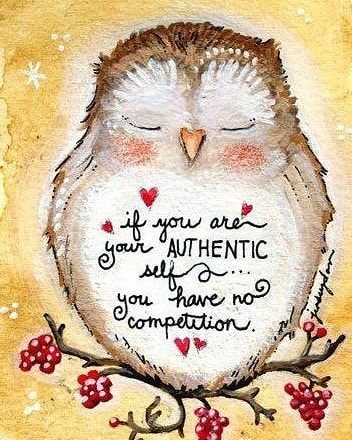 if you are
your AUTHENTIC
self...
you have no
competition.